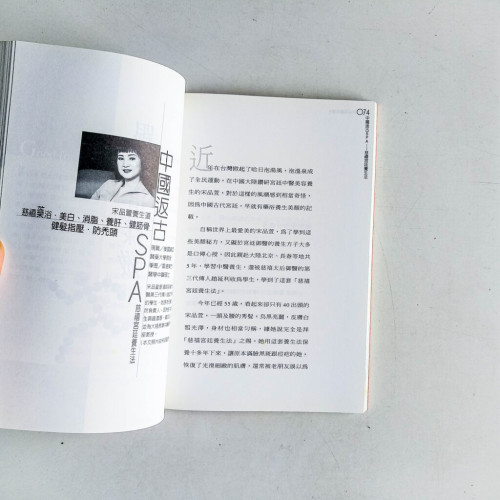 中國返古SPA
慈禧宮廷養生法
宋品萱養生道
慈禧藥浴．美白、消脂、養肝、健筋骨
健髮指壓．防禿頭
074
中國返古SPA
慈禧宮廷養生法
近年在台灣掀起了哈日泡湯風，泡溫泉成
了全民運動。在中國大陸鑽研宮廷中醫美容養
生的宋品萱，對於這樣的風潮感到相當奇怪，
因為中國古代宮廷，早就有藥浴養生美顏的記
載。
自稱世界上最愛美的宋品萱，為了學到這
些美顏秘方，又礙於宮廷御醫的養生方子大多
是口傳心授，因此親赴大陸北京、長春等地共
5年，學習中醫養生，還被慈禧太后御醫的第
三代傳人趙
收他為學生，學到了這套「慈禧
宮廷養生法」。
今年已經55歲，看起來卻只有40出頭的
宋品萱，一頭及腰的秀髮，烏黑亮麗，皮膚白
皙光滑，身材也相當勻稱，雖她說完全是拜
「慈禧宮廷養生法」之賜。她用這套養生法保
養十多年下來，讓原本滿臉黑斑與痘疤的她，
恢復了光滑細緻的肌膚，還常被老朋友誤以為